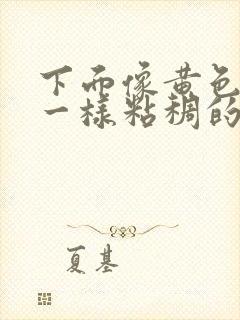 下而像黄色
一样粘稠的
夏基